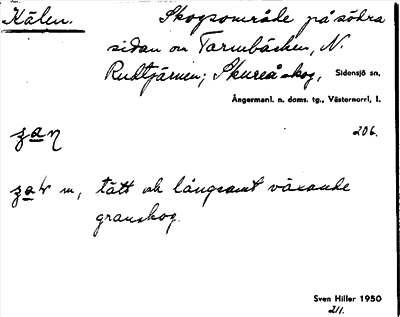 Kälen. Skogsområde på södra
sidan om Tarmbäcken, N.
Rudtjärnen; Skureå skog, Sidensjö sn,
Ångermanl. n. doms. tg., Västernorrl. l.
206.
m, tätt och långsamt växande
granskog.
Sven Hiller 1950
211.